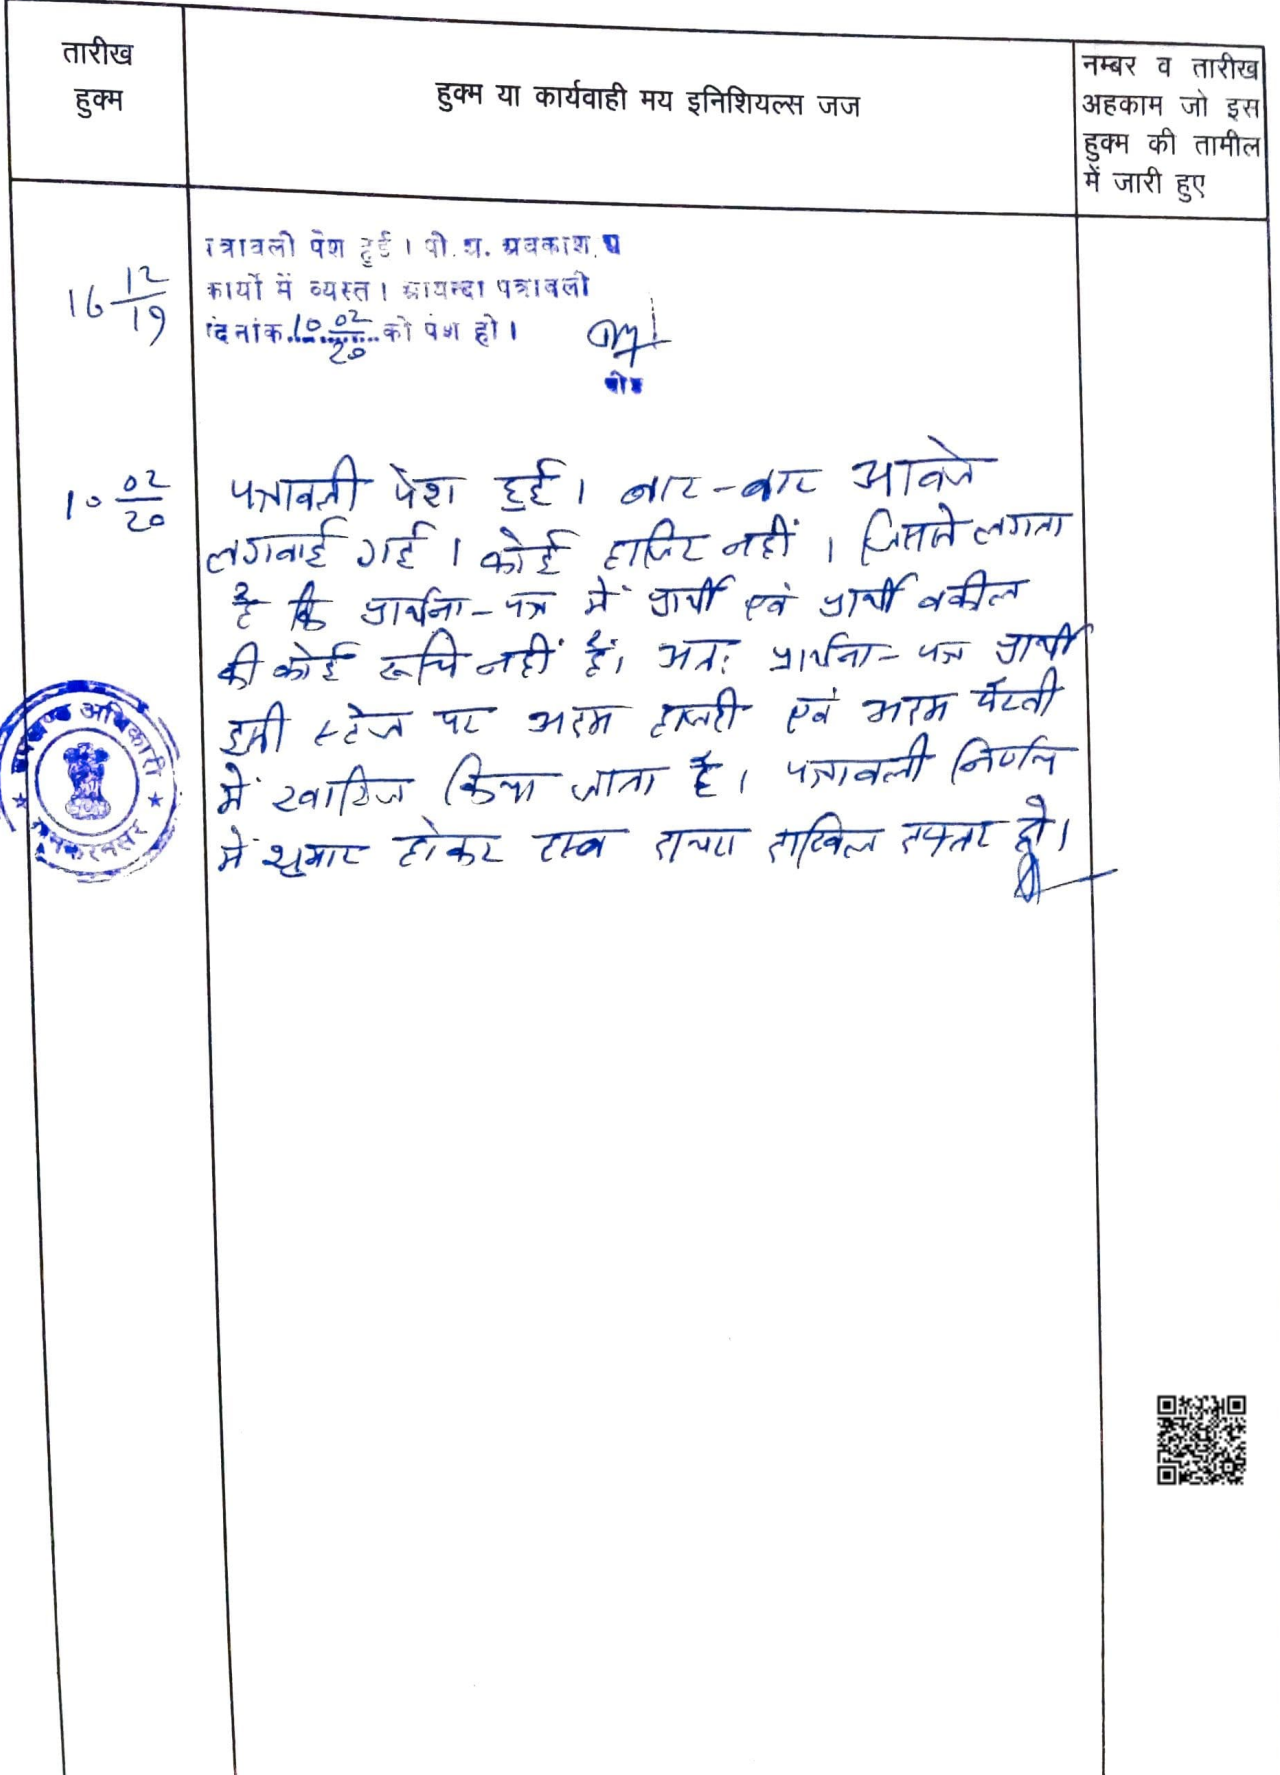 तारीख
हुक्म
हुक्म या कार्यवाही मय इनिशियल्स जज
नम्बर व तारीख
अहकाम जो इस
हुक्म की तामील
में जारी हुए
16 12/19
पत्रावली पेश हुई। पी.अ. अवकाश
कार्यो में व्यस्त। आयन्दा पत्रावली
दिनांक 10 02/20 को पेश हो।
10 02/20
पत्रावली पेश हुई। बार-बार आवाजे
लगवाई गई। कोई हाजिर नहीं। जिससे लगता
है कि प्रार्थना-पत्र में प्रार्थी एवं प्रार्थी वकील
की कोई रूचि नहीं है। अतः प्रार्थना-पत्र प्रार्थी
इसी स्टेज पर अदम हाजरी एवं अदम पैरवी
में खारिज किया जाता है। पत्रावली निर्णय
में शुमार होकर दाखिल दफ्तर हो।
उपखण्ड अधिकारी
लूनकरनसर